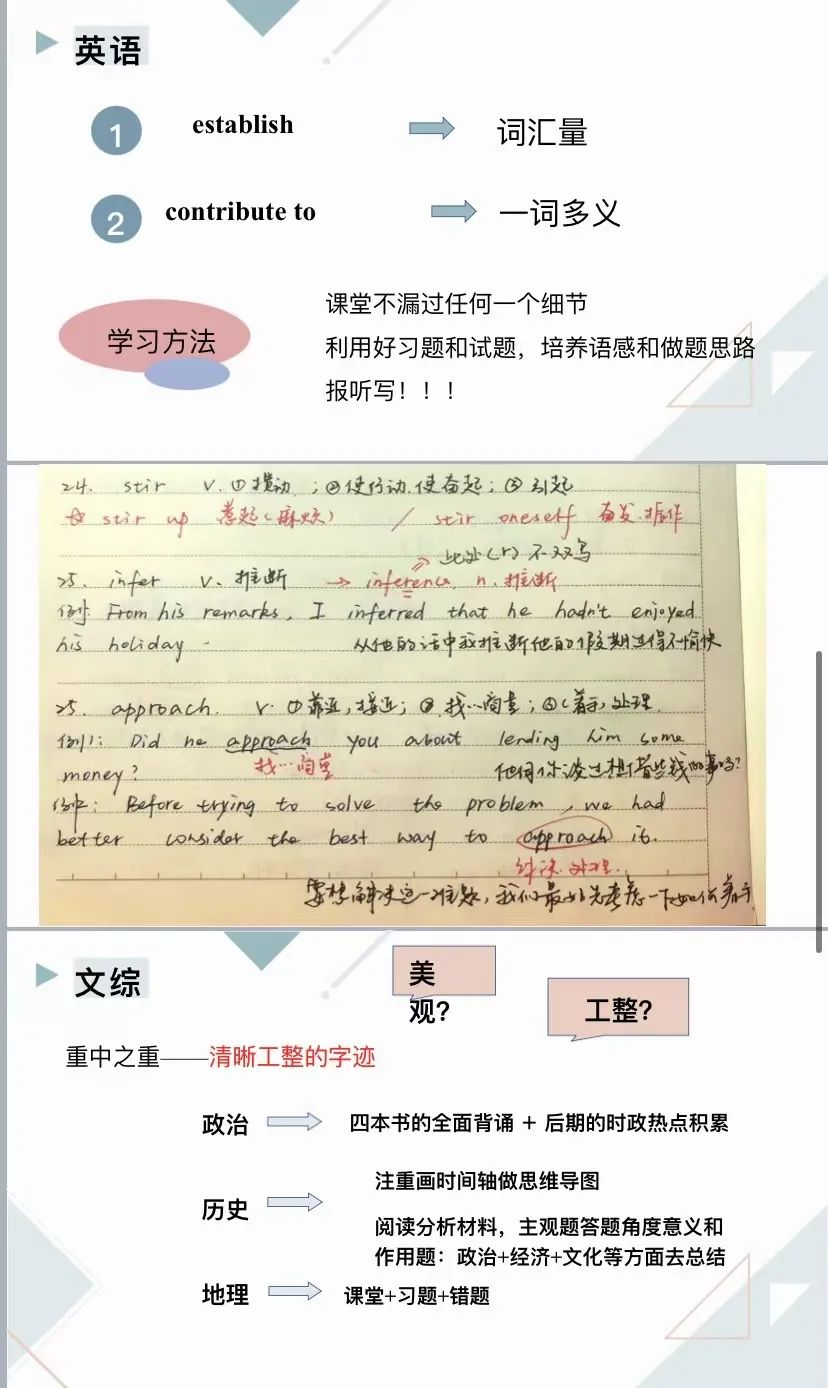 英语
1 establish 词汇量
2 contribute to 一词多义
学习方法
课堂不漏过任何一个细节
利用好习题和试题，培养语感和做题思路
报听写！！！
24. stir v. ①搅动；②使行动,使奋起；③引起
☆ stir up 惹起(麻烦) / stir oneself 奋发.振作
此处(r)不双写
25. infer v. 推断 → inference. n. 推断
例: From his remarks, I inferred that he hadn't enjoyed
his holiday. 从他的话中我推断他的假期过得不愉快
25. approach. v. ①靠近,接近；②.找…商量；③(着手)处理.
例1: Did he approach you about lending him some
找…商量
money? 他向你谈过想借些钱的事吗?
例2: Before trying to solve the problem, we had
better consider the best way to approach it.
处理.
要想解决这一难题,我们最好先考虑一下如何着手
文综
美
观?
工整?
重中之重——清晰工整的字迹
政治 四本书的全面背诵 + 后期的时政热点积累
历史 注重画时间轴做思维导图
阅读分析材料，主观题答题角度意义和
作用题：政治+经济+文化等方面去总结
地理 课堂+习题+错题